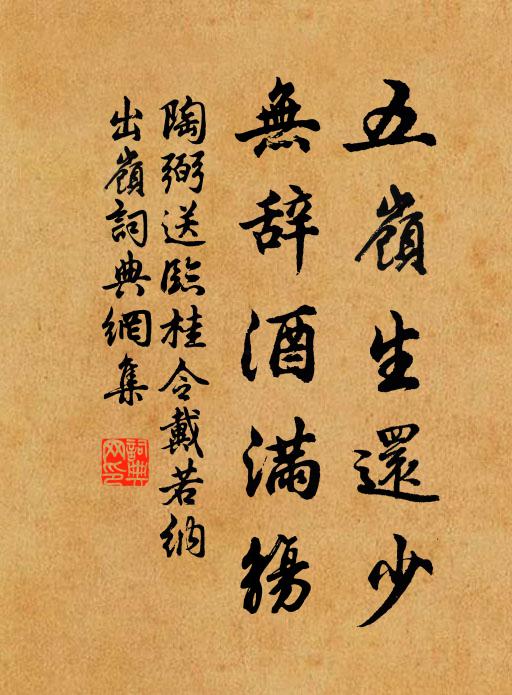 五嶺生還少
無辞酒满觴
陶弼送臨桂令戴若納
出嶺詞典網集
詞典網印